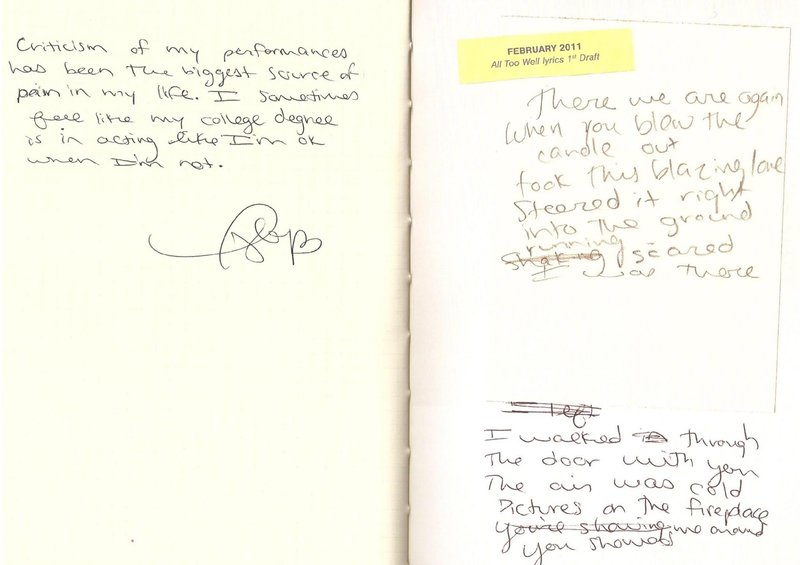 Criticism of my performances
has been the biggest source of
pain in my life. I sometimes
feel like my college degree
is in acting like I'm ok
when I'm not.
FEBRUARY 2011
All Too Well lyrics 1st Draft
There we are again
when you blew the
candle out
took this blazing love
Steered it right
into the ground
running
shaking scared
I was there
I walked in through
The door with you
The air was cold
Pictures on the fireplace
You're showing me around
you showed